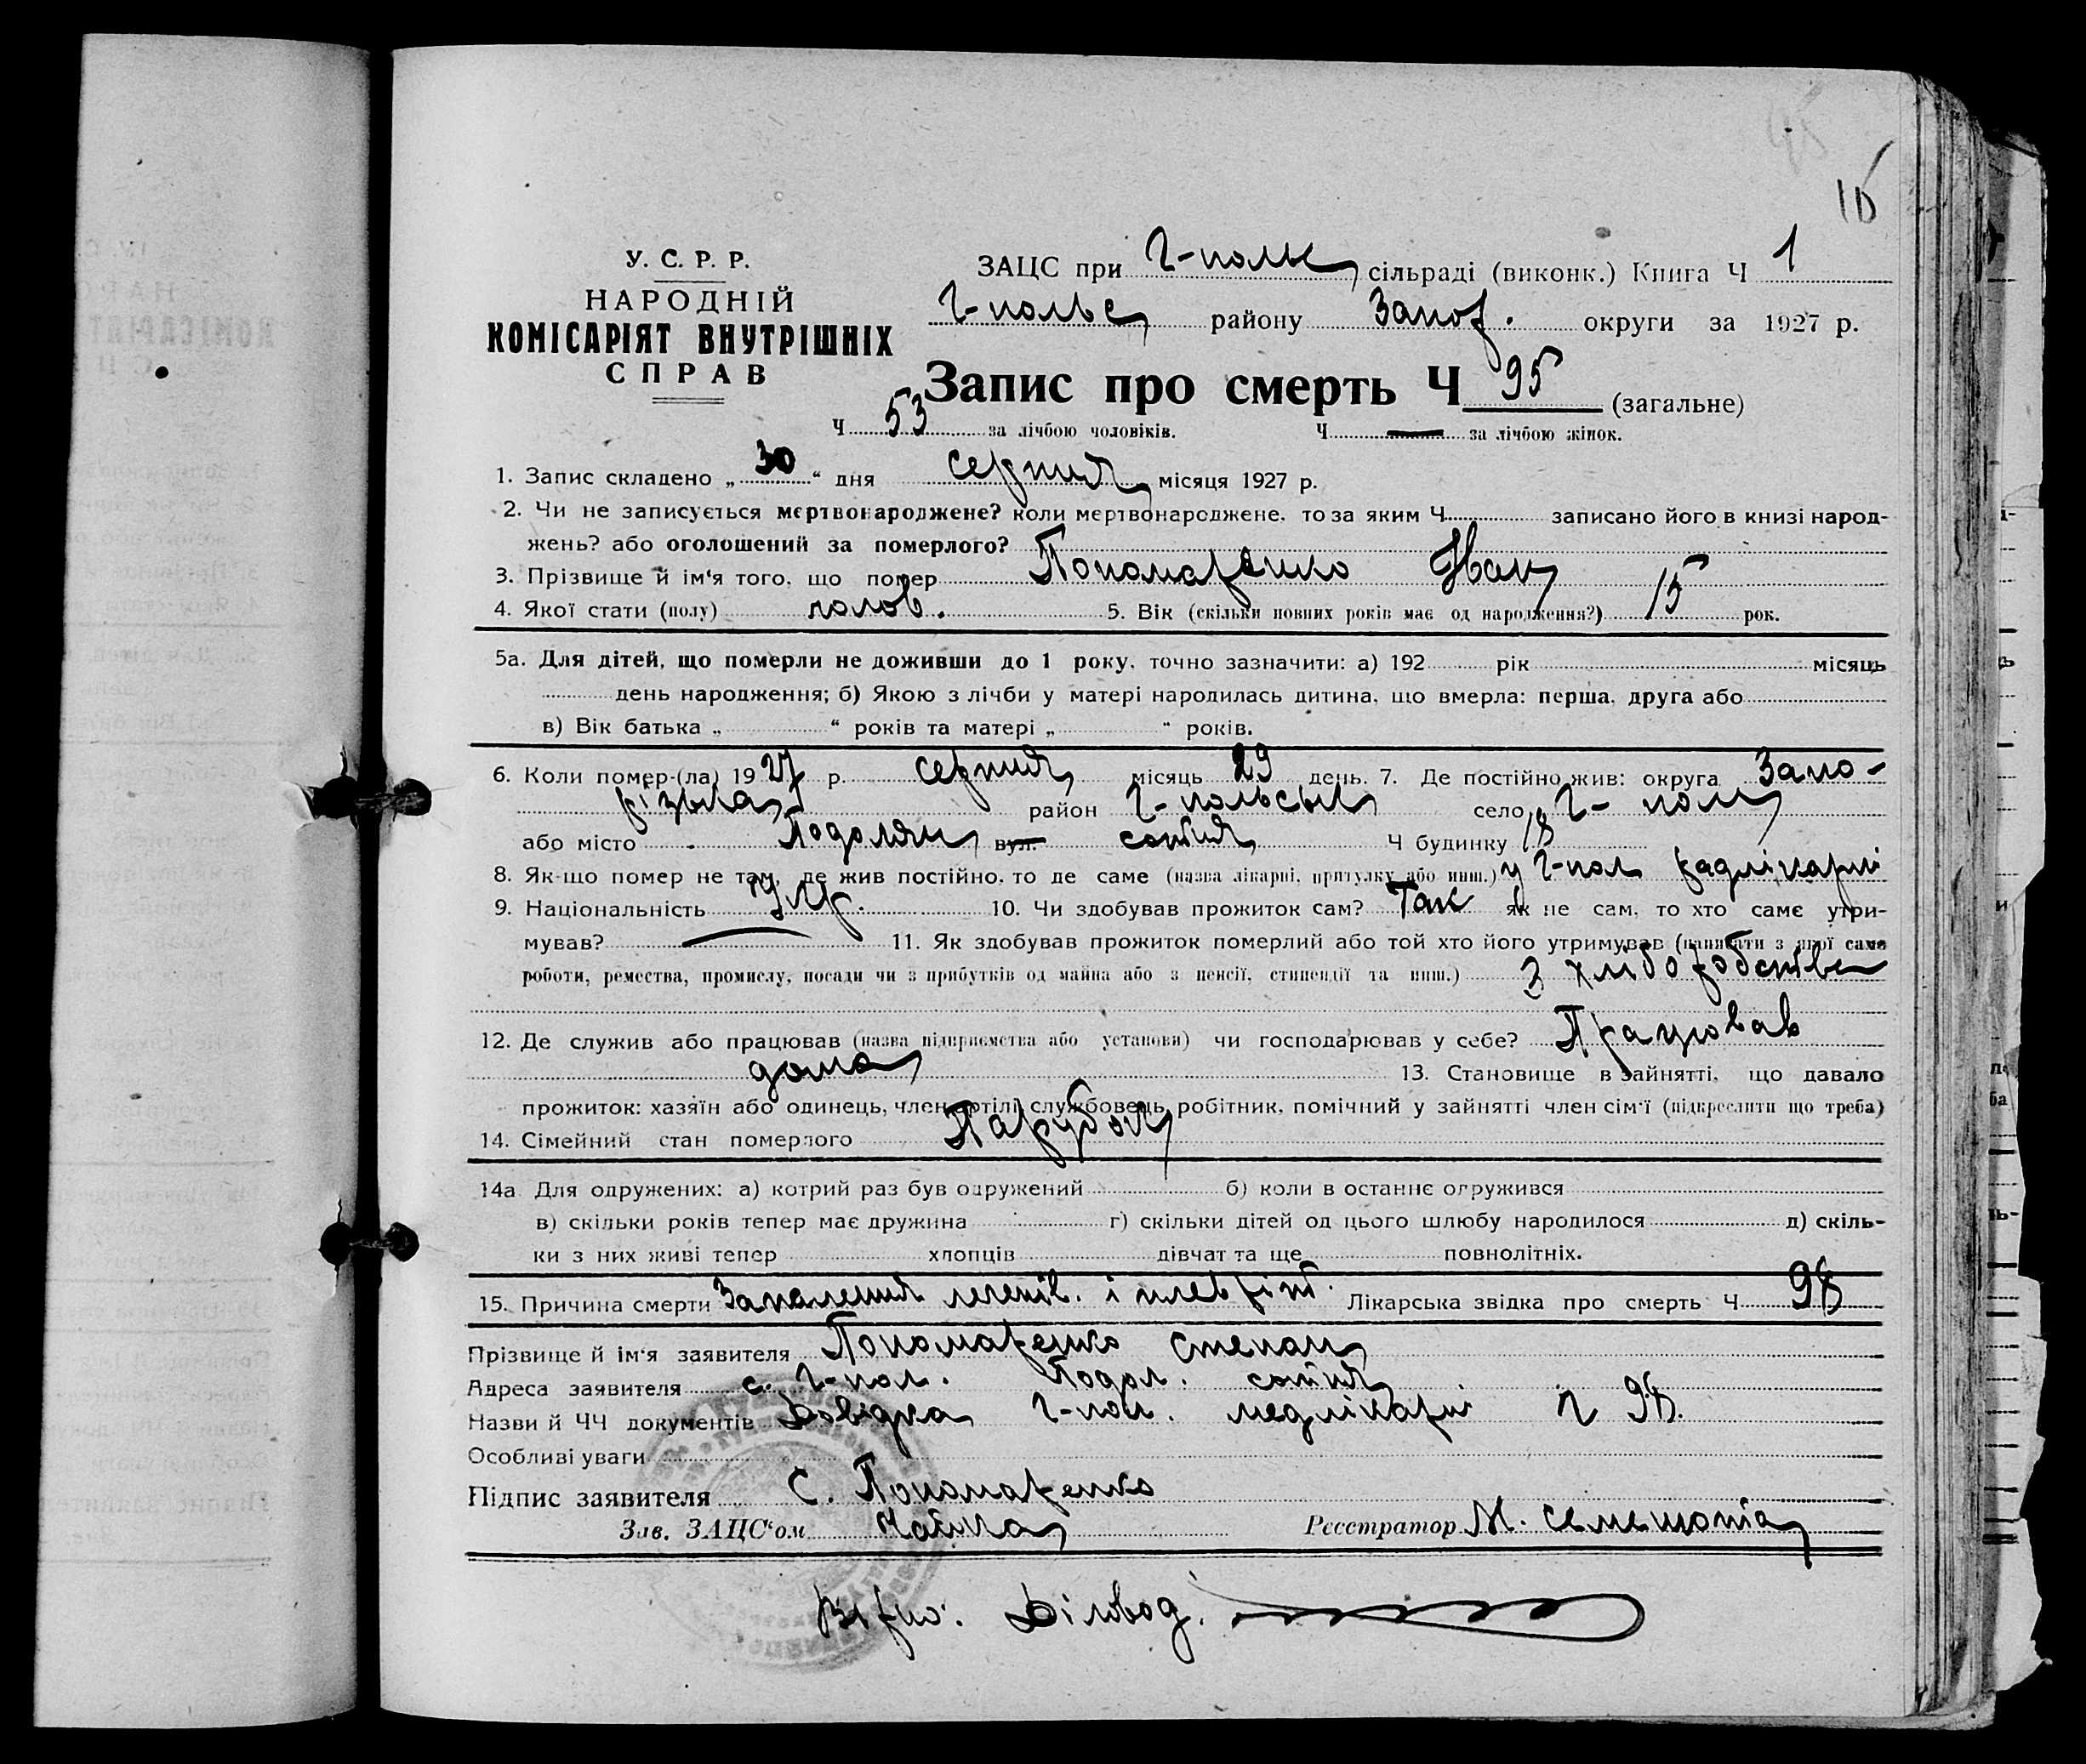 95
16
У. С. Р. Р.
НАРОДНІЙ
КОМІСАРІЯТ ВНУТРІШНІХ
СПРАВ
ЗАЦС при Г-польс сільраді (виконк.) Книга Ч 1
Г-польс району Запор. округи за 1927 р.
Запис про смерть Ч 95 (загальне)
Ч 53 за лічбою чоловіків. Ч — за лічбою жінок.
1. Запис складено „ 30 “ дня серпня місяця 1927 р.
2. Чи не записується мертвонароджене? коли мертвонароджене, то за яким Ч. записано його в книзі народ-
жень? або оголошений за померлого?
3. Прізвище й ім‘я того, що помер Пономаренко Іван
4. Якої стати (полу) чолов. 5. Вік (скільки повних років має од народження?) 15 рок.
5а. Для дітей, що померли не доживши до 1 року, точно зазначити: а) 192 рік місяць
день народження; б) Якою з лічби у матері народилась дитина, що вмерла: перша, друга або
в) Вік батька „ “ років та матері „ “ років.
6. Коли помер-(ла) 1927 р. серпня місяць 29 день. 7. Де постійно жив: округа Запо-
різька район Г-польськ село Г-поль
або місто Подолян вул. сотня Ч будинку 18
8. Як-що помер не там, де жив постійно, то де саме (назва лікарні, притулку або инш.) у Г-пол радлікарні
9. Національність Укр. 10. Чи здобував прожиток сам? Так як не сам, то хто саме утри-
мував? — 11. Як здобував прожиток померлий або той хто його утримував (написати з якої саме
роботи, ремества, промислу, посади чи з прибутків од майна або з пенсії, стипендії та инш.) З хліборобства
12. Де служив або працював (назва підприємства або установи) чи господарював у себе? Працював
дома 13. Становище в зайнятті, що давало
прожиток: хазяїн або одинець, член артілі, службовець, робітник, помічний у зайнятті член сім‘ї (підкреслити що треба)
14. Сімейний стан померлого Парубок
14а Для одружених: а) котрий раз був одружений б) коли в останнє одружився
в) скільки років тепер має дружина г) скільки дітей од цього шлюбу народилося д) скіль-
ки з них живі тепер хлопців дівчат та ще повнолітніх.
15. Причина смерти Запалення легенів. і плевріт. Лікарська звідка про смерть Ч. 98
Прізвище й ім‘я заявителя Пономаренко Степан
Адреса заявителя с. Г-пол. Подол. сотня
Назви й ЧЧ документів Довідка Г-пол. медлікарні Ч 98.
Особливі уваги
Підпис заявителя С. Пономаренко
Зав. ЗАЦС‘ом Чайка Реєстратор М. Семешотіа
Вірно: Діловод.